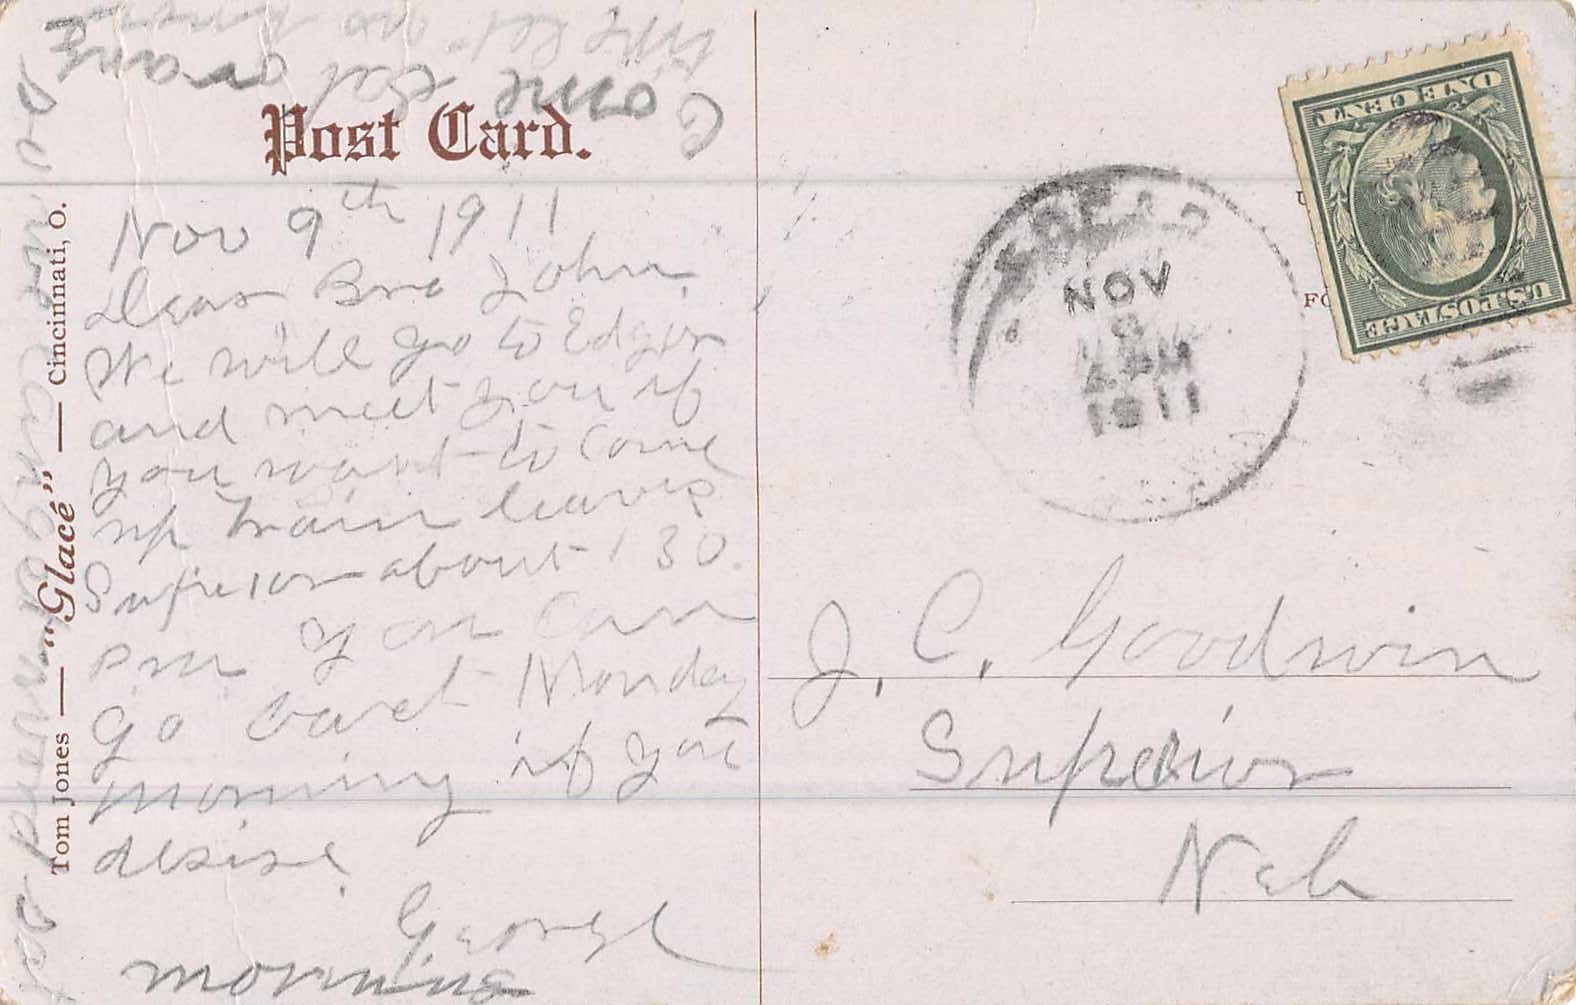 Post Card.
Nov 9th 1911
Dear Bro John
We will go to Edgar
and meet you if
you want to come
up train leaves
Superior about 1 30
you can
go back Monday
morning if you
desire
George
morning
Come
Tom Jones — "Glacé" — Cincinnati, O.
ONE CENT
U.S. POSTAGE
NOV
1911
J. C. Goodwin
Superior
Neb